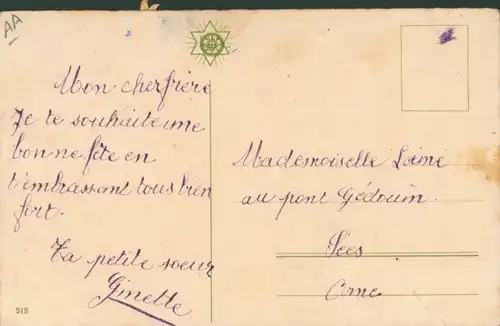 AA
Mon cher frère
Je te souhaite une
bonne fête en
t'embrassant tous bien
fort.
Ta petite soeur
Ginette
Mademoiselle Loiné
au pont Gédouin.
Sées
Orne
515